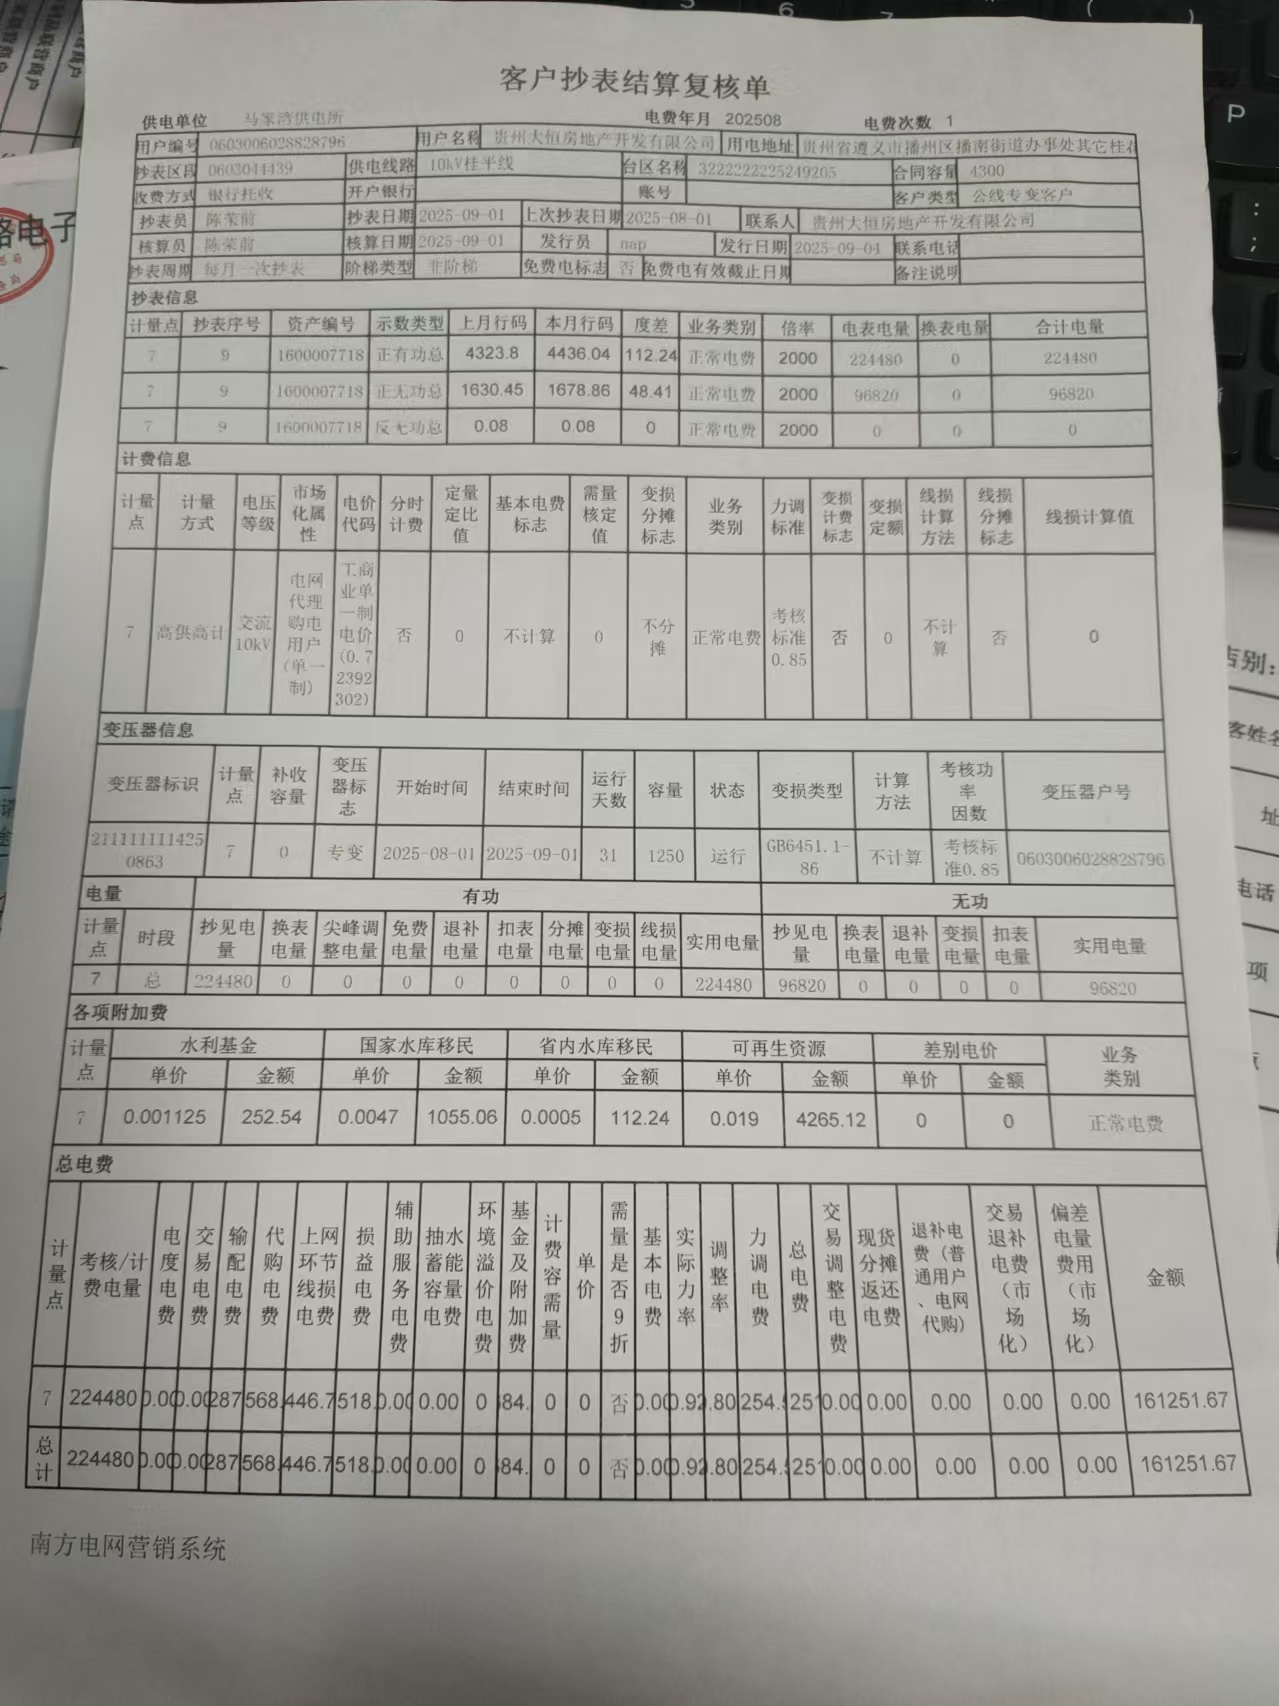 客户抄表结算复核单
供电单位 马家湾供电所 电费年月 202508 电费次数 1
用户编号 0603006028828796 用户名称 贵州大恒房地产开发有限公司 用电地址 贵州省遵义市播州区播南街道办事处其它桂花
抄表区段 0603044439 供电线路 10kV桂平线 台区名称 3222222225249205 合同容量 4300
收费方式 银行托收 开户银行 账号 客户类型 公线专变客户
抄表员 陈荣前 抄表日期 2025-09-01 上次抄表日期 2025-08-01 联系人 贵州大恒房地产开发有限公司
核算员 陈荣前 核算日期 2025-09-01 发行员 nap 发行日期 2025-09-04 联系电话
抄表周期 每月一次抄表 阶梯类型 非阶梯 免费电标志 否 免费电有效截止日期 备注说明
抄表信息
计量点 抄表序号 资产编号 示数类型 上月行码 本月行码 度差 业务类别 倍率 电表电量 换表电量 合计电量
7 9 1600007718 正有功总 4323.8 4436.04 112.24 正常电费 2000 224480 0 224480
7 9 1600007718 正无功总 1630.45 1678.86 48.41 正常电费 2000 96820 0 96820
7 9 1600007718 反无功总 0.08 0.08 0 正常电费 2000 0 0 0
计费信息
计量点 计量方式 电压等级 市场化属性 电价代码 分时计费 定量定比值 基本电费标志 需量核定值 变损分摊标志 业务类别 力调标准 变损计费标志 变损定额 线损计算方法 线损分摊标志 线损计算值
7 高供高计 交流10kV 电网代理购电用户(单一制) 工商业单一制电价(0.72392302) 否 0 不计算 0 不分摊 正常电费 考核标准0.85 否 0 不计算 否 0
变压器信息
变压器标识 计量点 补收容量 变压器标志 开始时间 结束时间 运行天数 容量 状态 变损类型 计算方法 考核功率因数 变压器户号
2111111114250863 7 0 专变 2025-08-01 2025-09-01 31 1250 运行 GB6451.1-86 不计算 考核标准0.85 0603006028828796
电量 有功 无功
计量点 时段 抄见电量 换表电量 尖峰调整电量 免费电量 退补电量 扣表电量 分摊电量 变损电量 线损电量 实用电量 抄见电量 换表电量 退补电量 变损电量 扣表电量 实用电量
7 总 224480 0 0 0 0 0 0 0 0 224480 96820 0 0 0 0 96820
各项附加费
计量点 水利基金 国家水库移民 省内水库移民 可再生资源 差别电价 业务类别
单价 金额 单价 金额 单价 金额 单价 金额 单价 金额
7 0.001125 252.54 0.0047 1055.06 0.0005 112.24 0.019 4265.12 0 0 正常电费
总电费
计量点 考核/计费电量 电度电费 交易电费 输配电费 代购电费 上网环节线损电费 损益电费 辅助服务电费 抽水蓄能容量电费 环境溢价电费 基金及附加费 计费容需量 单价 需量是否9折 基本电费 实际力率 调整率 力调电费 总电费 交易调整电费 现货分摊返还电费 退补电费（普通用户、电网代购） 交易退补电费（市场化） 偏差电量费用（市场化） 金额
7 224480 0.00 0.00 287 568. 446.7 518. 0.00 0.00 0 84. 0 0 否 0.00 0.92 .80 254. 251 0.00 0.00 0.00 0.00 0.00 161251.67
总计 224480 0.00 0.00 287 568. 446.7 518. 0.00 0.00 0 84. 0 0 否 0.00 0.92 .80 254. 251 0.00 0.00 0.00 0.00 0.00 161251.67
南方电网营销系统